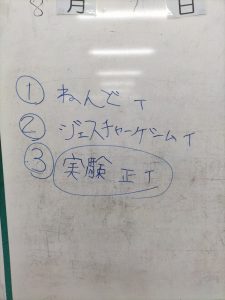 8月 日
① ねんど T
② ジェスチャーゲーム T
③ 実験 正 T